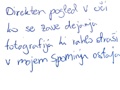 Direkten pogled v oči
ko se zave dejanja
fotografija ki rahlo straši
v mojem spominja ostaja